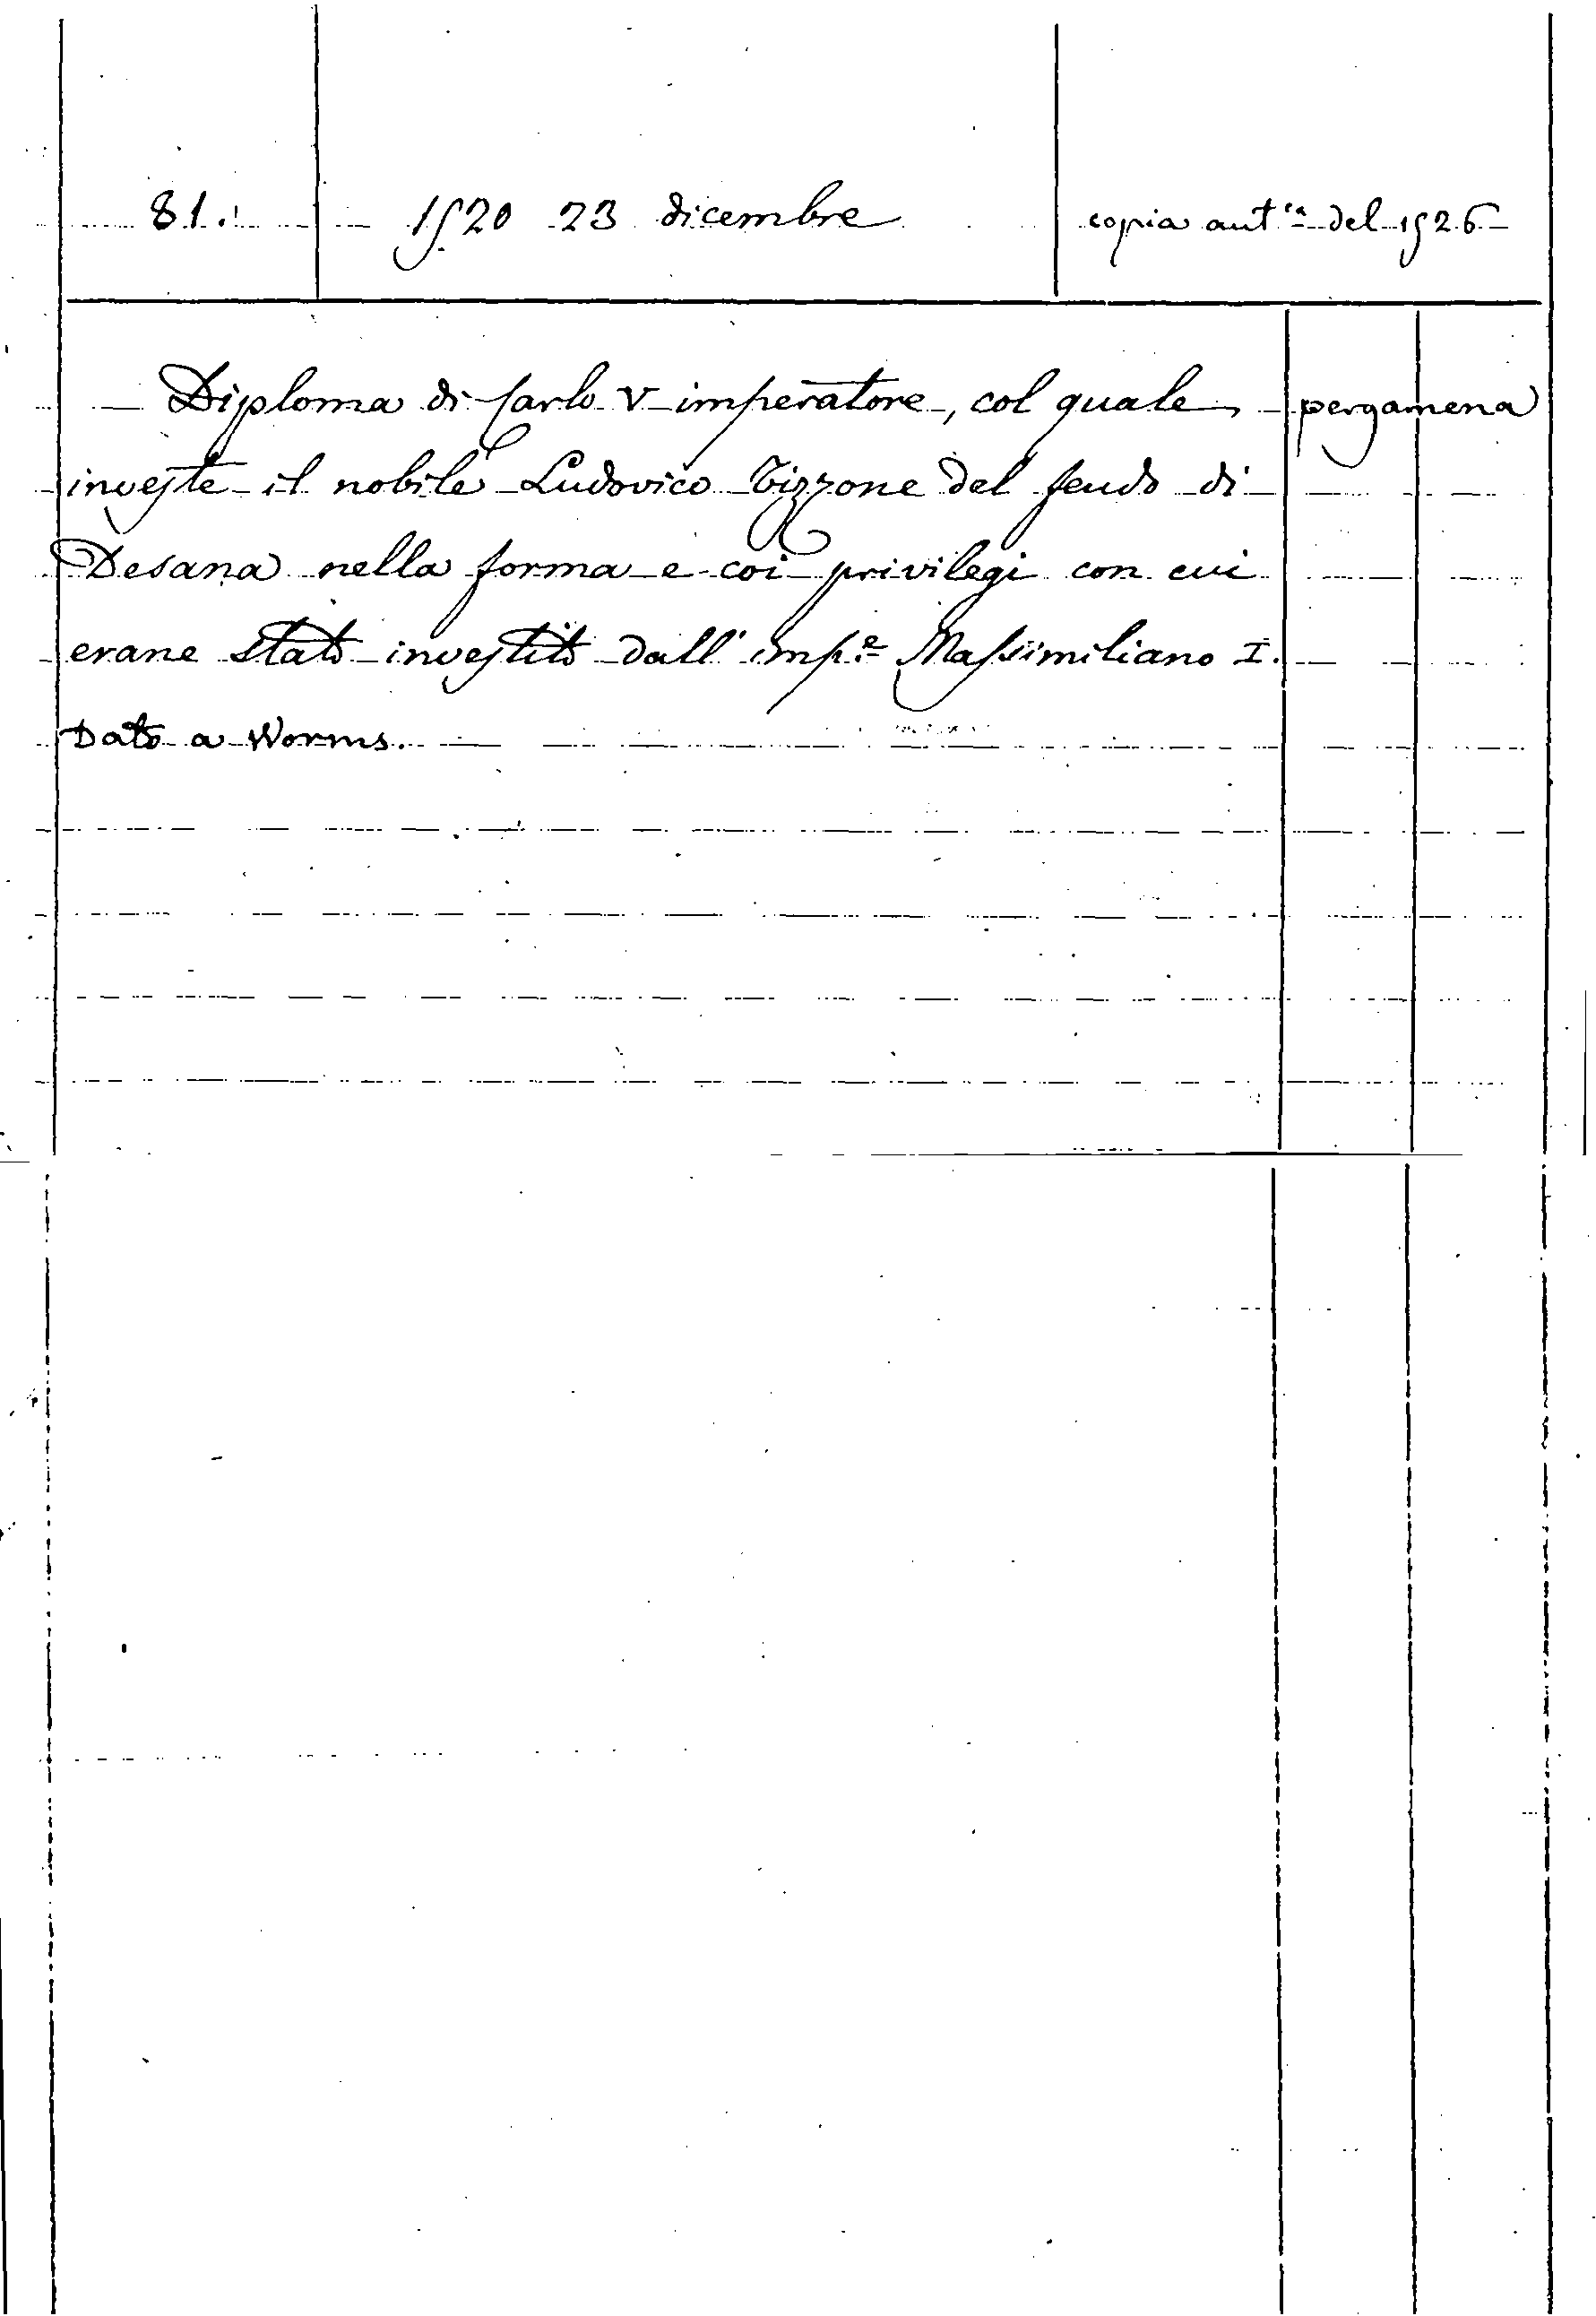 81. 1520 23 dicembre copia aut.ca del 1526
Diploma di Carlo V imperatore, col quale pergamena
investe il nobile Ludovico Tizzone del feudo di
Desana nella forma e coi privilegi con cui
erane stato investito dall' imp.e Massimiliano I.
Dato a Worms.